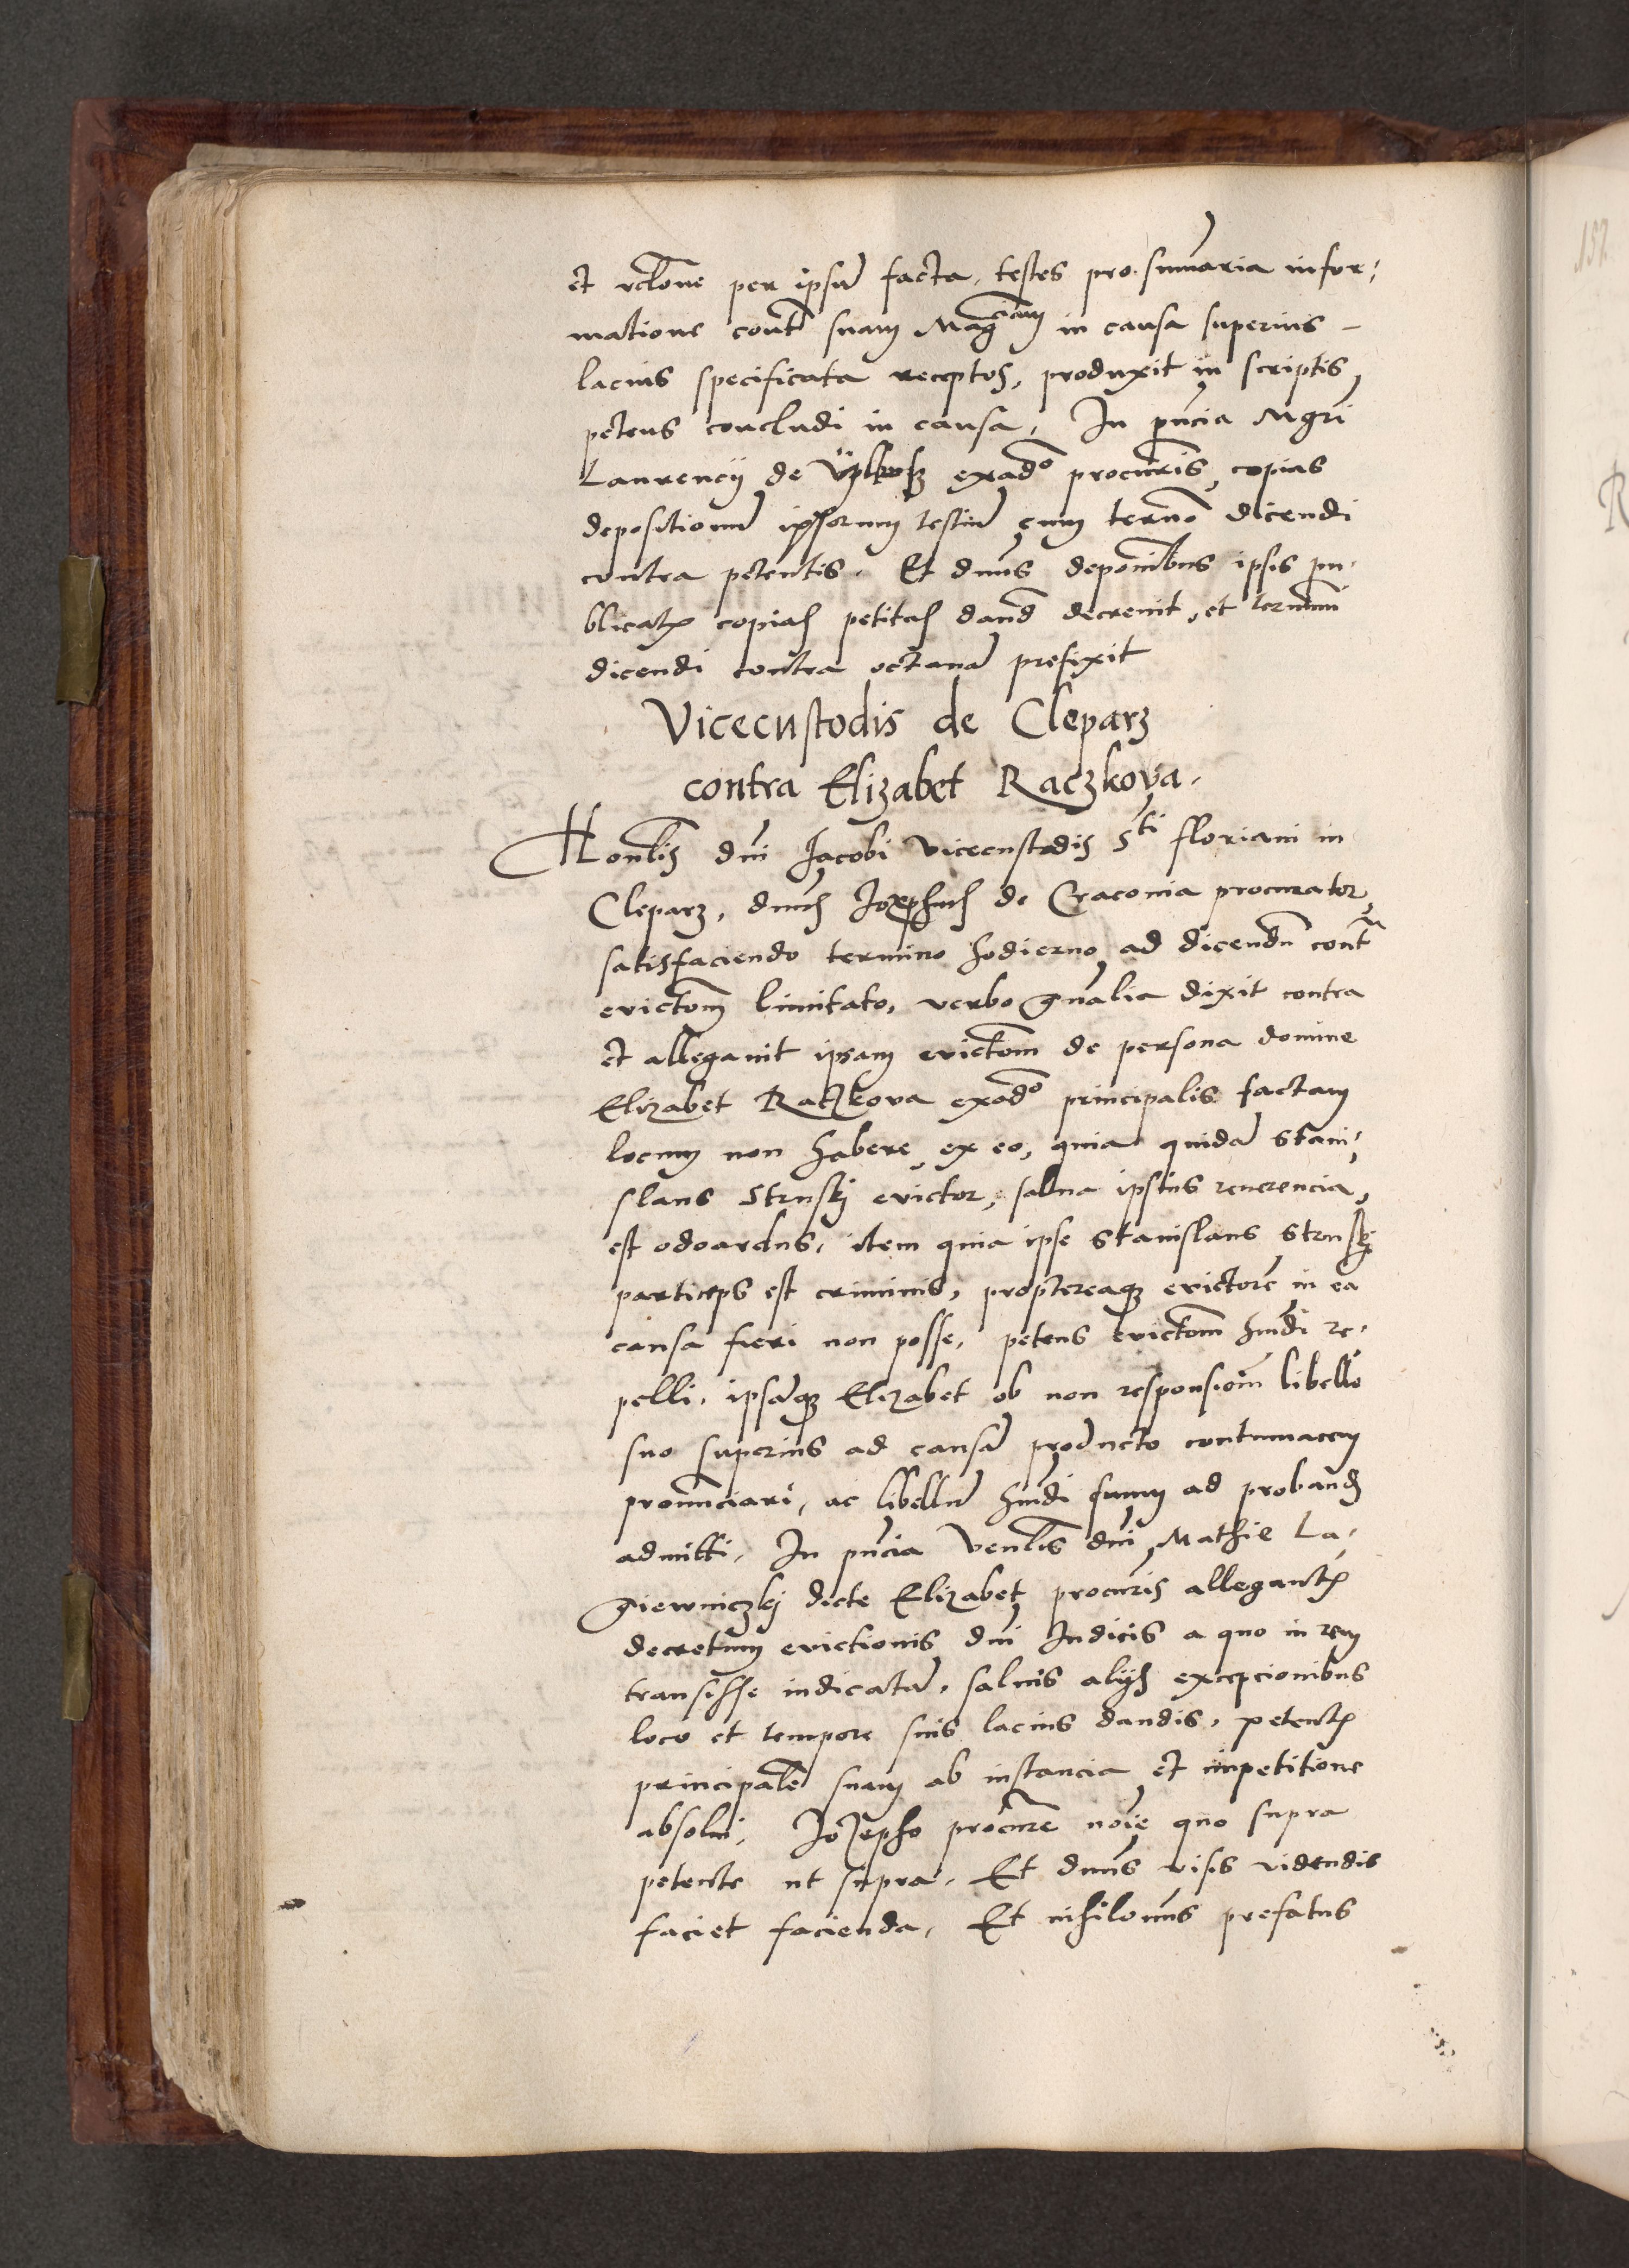 et rclone per ipsu facta, testes pro sumaria infor:
matione cont suam Mag ciam in causa superius -
lacius specificata receptos, produxit in scriptis
petens concludi in causa, In pncia Mgri
Laurencij de exadō procuris copias
depositionu ipsorum testiu cum termō dicendi
contra petentis. Et dnus deponibus ipsis pu-
blicatis copias petitas dand decrevit, et terminū
dicendi contra octavā prefixit
Vicecustodis de Cleparz
contra Elizabet Raczkova.
Honlis dni Jacobi vicecustodis Sti floriani in
Cleparz, dnus Josephus de Cracovia procurator
satisfaciendo termino hodierno ad dicendū cont
evictom limitato, verbo gnalia dixit contra
et allegavit ipsam evictom de persona domine
Elizabet Raczkova exadō principalis factam
locum non habere, ex eo, quia quidā Stani:
slaus Strusky evictor, salva ipsius reverencia,
est odoardus, item quia ipse Stanislaus Strusky
particeps est criminis, proptereaq evictorē in ea
causa fieri non posse, petens evictom hmdi re-
pelli, ipsāq Elizabet ob non responsiom libello
suo superius ad causā producto contumacem
pronūciari, ac libellū hmdi suum ad proband
admitti, In pncia venlis dni Mathie La-
giewniczky dicte Elizabet procuris allegantis
decretum evictionis dni Judicis a quo in rem
transisse iudicatā, salvis alijs excepcionibus
loco et tempore suis lacius dandis, petentis
principalē suam ab instancia et impetitione
absolvi, Josepho procurē noie quo supra
petente ut supra, Et dnus visis videndis
faciet facienda, Et nihilomus prefatus